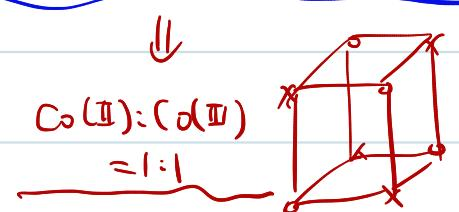 ⇓
Co(II):Co(III)
=1:1